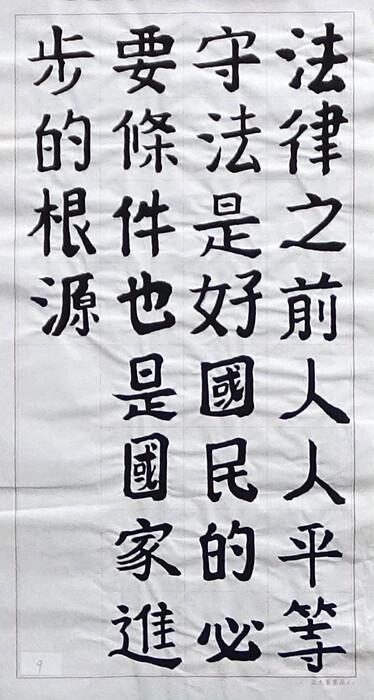 法律之前人人平等
守法是好國民的必
要條件也是國家進
步的根源
9